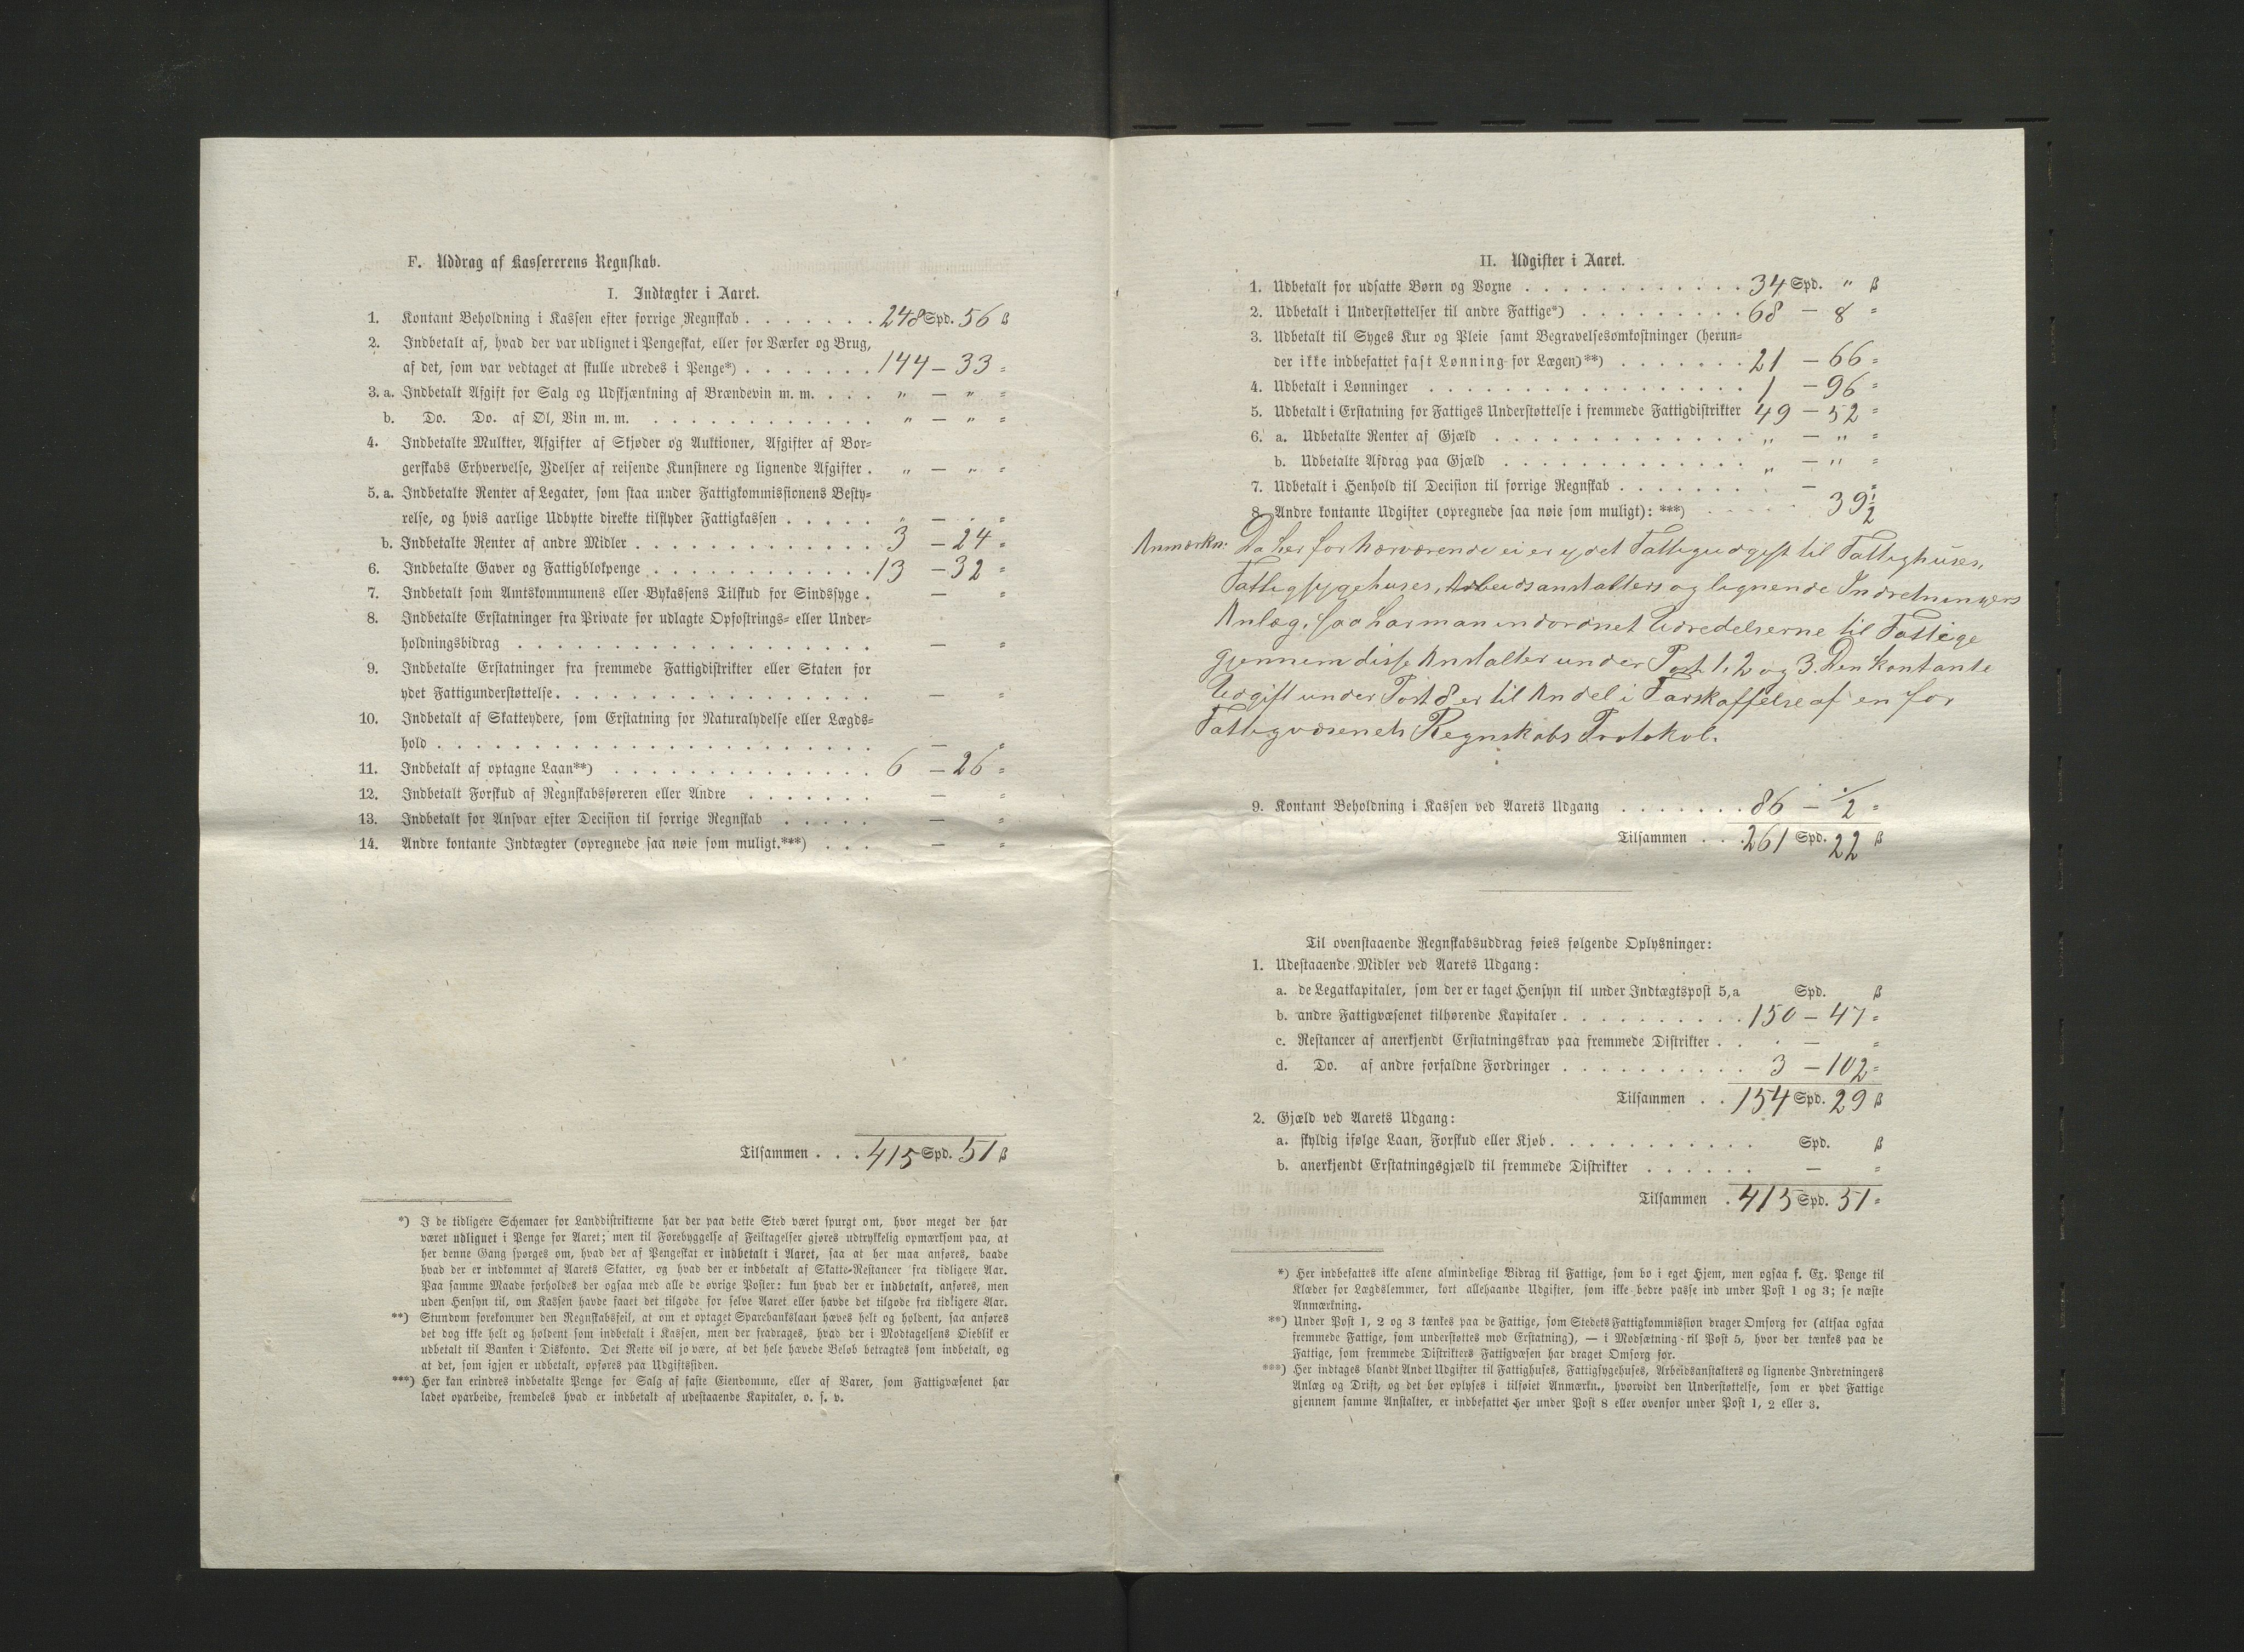 F. Uddrag af Kassererens Regnskab.
I. Indtægter i Aaret.
1. Kontant Beholdning i Kassen efter forrige Regnskab . . . . . . . 248 Spd. 56 ß
2. Indbetalt af, hvad der var udlignet i Pengeskat, eller for Værker og Brug,
af det, som var vedtaget at skulle udredes i Penge*) . . . . . . . 144 — 33 =
3. a. Indbetalt Afgift for Salg og Udskjænkning af Brændevin m. m. . . . „ — „ =
b. Do. Do. af Øl, Vin m. m. . . . . . . . . . . . . „ — „ =
4. Indbetalte Mulkter, Afgifter af Skjøder og Auktioner, Afgifter af Bor=
gerskabs Erhvervelse, Ydelser af reisende Kunstnere og lignende Afgifter . „ — „ =
5. a. Indbetalte Renter af Legater, som staa under Fattigkommissionens Besty=
relse, og hvis aarlige Udbytte direkte tilflyder Fattigkassen . . . . . „ — „ =
b. Indbetalte Renter af andre Midler . . . . . . . . . . . . . 3 — 24 =
6. Indbetalte Gaver og Fattigblokpenge . . . . . . . . . . . . 13 — 32 =
7. Indbetalt som Amtskommunens eller Bykassens Tilskud for Sindssyge . — =
8. Indbetalte Erstatninger fra Private for udlagte Opfostrings= eller Under=
holdningsbidrag . . . . . . . . . . . . . . . . . . . — =
9. Indbetalte Erstatninger fra fremmede Fattigdistrikter eller Staten for
ydet Fattigunderstøttelse . . . . . . . . . . . . . . . . . — =
10. Indbetalt af Skatteydere, som Erstatning for Naturalydelse eller Lægds=
hold . . . . . . . . . . . . . . . . . . . . . . . — =
11. Indbetalt af optagne Laan**) . . . . . . . . . . . . . . 6 — 26 =
12. Indbetalt Forskud af Regnskabsføreren eller Andre . . . . . . . — =
13. Indbetalt for Ansvar efter Decision til forrige Regnskab . . . . . — =
14. Andre kontante Indtægter (opregnede saa nøie som muligt.***) . . . — =
Tilsammen . . . 415 Spd. 51 ß
*) I de tidligere Schemaer for Landdistrikterne har der paa dette Sted været spurgt om, hvor meget der har
været udlignet i Penge for Aaret; men til Forebyggelse af Feiltagelser gjøres udtrykkelig opmærksom paa, at
her denne Gang spørges om, hvad der af Pengeskat er indbetalt i Aaret, saa at her maa anføres, baade
hvad der er indkommet af Aarets Skatter, og hvad der er indbetalt af Skatte=Restancer fra tidligere Aar.
Paa samme Maade forholdes der ogsaa med alle de øvrige Poster: kun hvad der er indbetalt, anføres, men
uden Hensyn til, om Kassen havde faaet det tilgode for selve Aaret eller havde det tilgode fra tidligere Aar.
**) Stundom forekommer den Regnskabsfeil, at om et optaget Sparebankslaan hæves helt og holdent, saa anføres
det dog ikke helt og holdent som indbetalt i Kassen, men der fradrages, hvad der i Modtagelsens Øieblik er
udbetalt til Banken i Diskonto. Det Rette vil jo være, at det hele hævede Beløb betragtes som indbetalt, og
at det, som igjen er udbetalt, opføres paa Udgiftssiden.
***) Her kan erindres indbetalte Penge for Salg af faste Eiendomme, eller af Varer, som Fattigvæsenet har
ladet oparbeide, fremdeles hvad er indbetalt af udestaaende Kapitaler, o. s. v.
II. Udgifter i Aaret.
1. Udbetalt for udsatte Børn og Voxne . . . . . . . . . . . . 34 Spd. „ ß
2. Udbetalt i Understøttelser til andre Fattige*) . . . . . . . . . 68 — 8 =
3. Udbetalt til Syges Kur og Pleie samt Begravelsesomkostninger (herun=
der ikke indbefattet fast Lønning for Lægen)**) . . . . . . . 21 — 66 =
4. Udbetalt i Lønninger . . . . . . . . . . . . . . . . . 1 — 96 =
5. Udbetalt i Erstatning for Fattiges Understøttelse i fremmede Fattigdistrikter 49 — 52 =
6. a. Udbetalte Renter af Gjæld . . . . . . . . . . . . . „ — „ =
b. Udbetalte Afdrag paa Gjæld . . . . . . . . . . . . . „ — „ =
7. Udbetalt i Henhold til Decision til forrige Regnskab . . . . . . . — =
8. Andre kontante Udgifter (opregnede saa nøie som muligt): ***) . . . . . 39½
Anmærkn: Da her for nærværende ei er ydet Fattigudgift til Fattighuses,
Fattigsygehuses, Arbeidsanstalters og lignende Indretningers
Anlæg, saa har man indordnet Udredelserne til Fattige
gjennem disse Anstalter under Post 1, 2 og 3. Den kontante
Udgift under Post 8 er til Andel i Farskaffelse af en for
Fattigvæsenets Regnskabs Protokol.
9. Kontant Beholdning i Kassen ved Aarets Udgang . . . . . . . 86 — ½ =
Tilsammen . . . 261 Spd. 22 ß
Til ovenstaaende Regnskabsuddrag føies følgende Oplysninger:
1. Udestaaende Midler ved Aarets Udgang:
a. de Legatkapitaler, som der er taget Hensyn til under Indtægtspost 5,a Spd. ß
b. andre Fattigvæsenet tilhørende Kapitaler . . . . . . . . . . 150 — 47 =
c. Restancer af anerkjendt Erstatningskrav paa fremmede Distrikter . . . — =
d. Do. af andre forfaldne Fordringer . . . . . . . . . . 3 — 102 =
Tilsammen . . 154 Spd. 29 ß
2. Gjæld ved Aarets Udgang:
a. skyldig ifølge Laan, Forskud eller Kjøb . . . . . . . . . . . Spd. ß
b. anerkjendt Erstatningsgjæld til fremmede Distrikter . . . . . . — =
Tilsammen . 415 Spd. 51 =
*) Her indbefattes ikke alene almindelige Bidrag til Fattige, som bo i eget Hjem, men ogsaa f. Ex. Penge til
Klæder for Lægdslemmer, kort allehaande Udgifter, som ikke bedre passe ind under Post 1 og 3; se næste
Anmærkning.
**) Under Post 1, 2 og 3 tænkes paa de Fattige, som Stedets Fattigkommission drager Omsorg for (altsaa ogsaa
fremmede Fattige, som understøttes mod Erstatning), — i Modsætning til Post 5, hvor der tænkes paa de
Fattige, som fremmede Distrikters Fattigvæsen har draget Omsorg for.
***) Her indtages blandt Andet Udgifter til Fattighuses, Fattigsygehuses, Arbeidsanstalters og lignende Indretningers
Anlæg og Drift, og det bør oplyses i tilføiet Anmærkn., hvorvidt den Understøttelse, som er ydet Fattige
gjennem samme Anstalter, er indbefattet her under Post 8 eller ovenfor under Post 1, 2 eller 3.